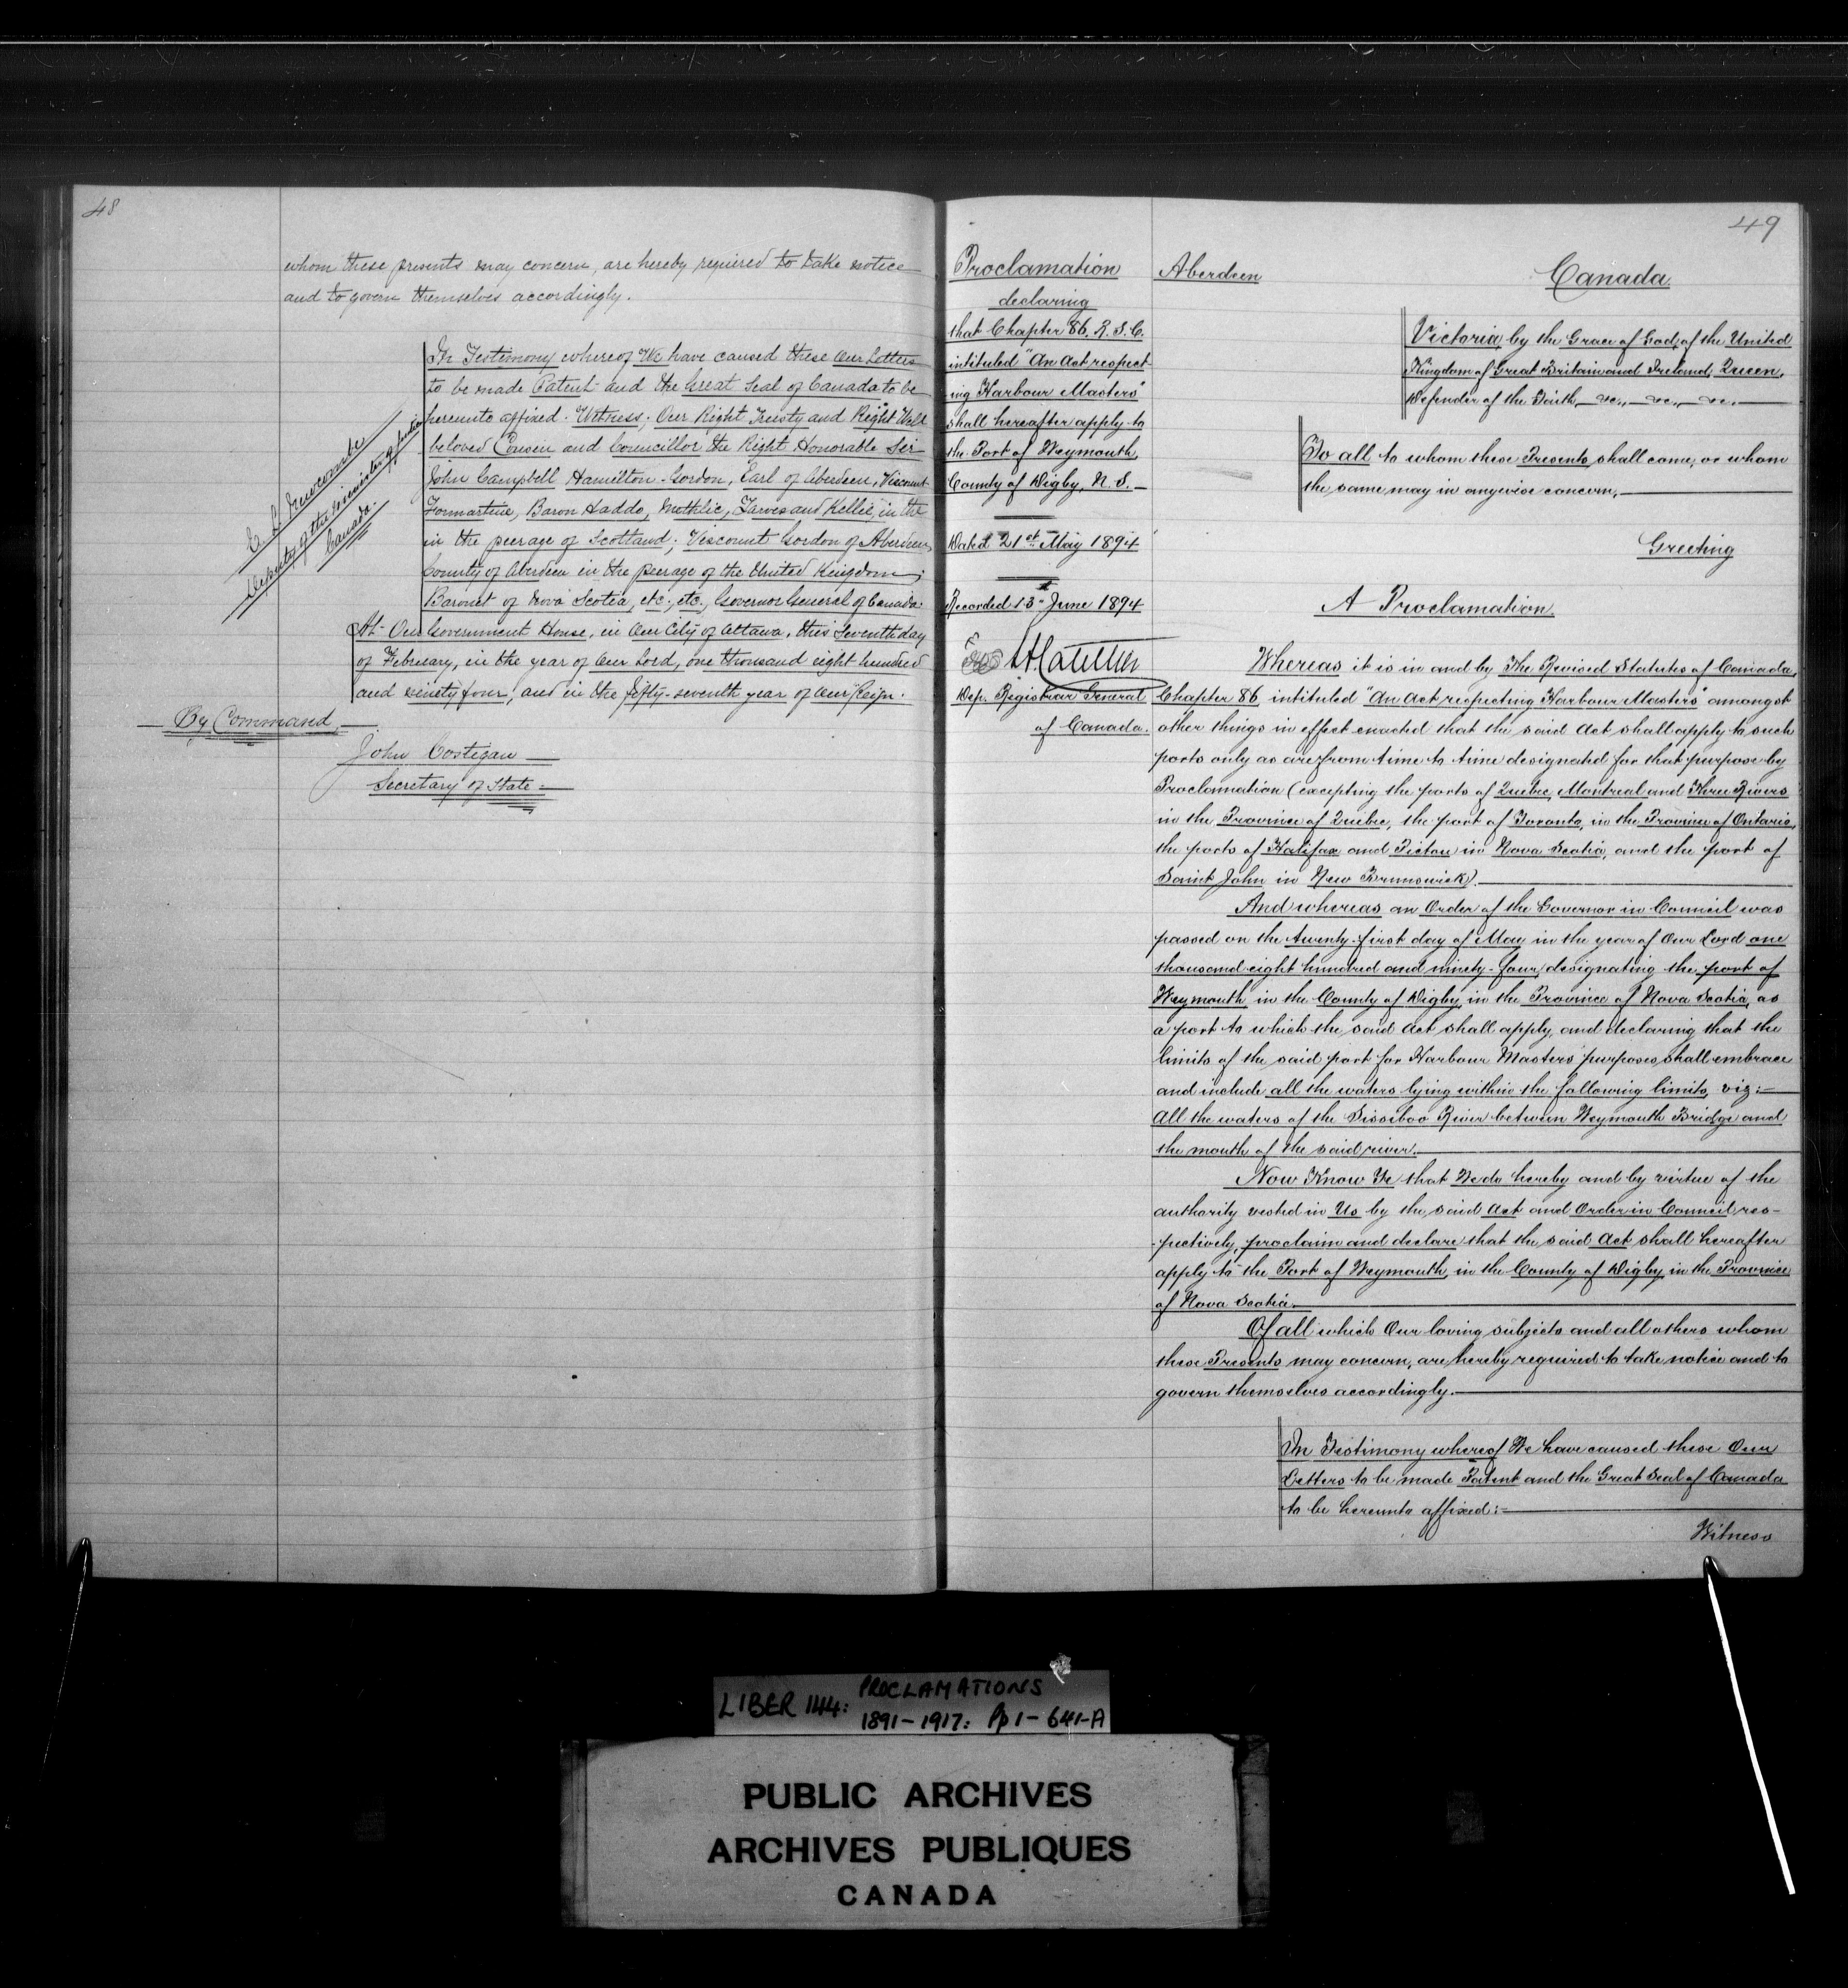 48
whom these presents may concern, are hereby required to take notice
and to govern themselves accordingly.
In Testimony whereof We have caused these Our Letters
to be made Patent and the Great Seal of Canada to be
hereunto affixed. Witness; Our Right Trusty and Right Well
beloved Cousin and Councillor the Right Honorable Sir
John Campbell Hamilton-Gordon, Earl of Aberdeen, Viscount
Formartine, Baron Haddo, Methlic, Tarves and Kellie, in the
in the peerage of Scotland; Viscount Gordon of Aberdeen,
County of Aberdeen in the peerage of the United Kingdom;
Baronet of Nova Scotia, etc., etc., Governor General of Canada.
At Our Government House, in Our City of Ottawa, this Seventh day
of February, in the year of Our Lord, one thousand eight hundred
and ninety four, and in the fifty-seventh year of Our Reign.
E. L. Newcombe
Deputy of the Minister of Justice
Canada.
By Command
John Costigan
Secretary of State
49
Proclamation
declaring
that Chapter 86. R. S. C.
intituled "An Act respect-
ing Harbour Masters"
shall hereafter apply to
the Port of Weymouth,
County of Digby, N. S.
Dated 21st May 1894
Recorded 13th June 1894
Dep. Registrar General
of Canada.
Aberdeen
Canada.
Victoria by the Grace of God, of the United
Kingdom of Great Britain and Ireland, Queen,
Defender of the Faith, &c., &c., &c.
To all to whom these Presents shall come, or whom
the same may in anywise concern,
Greeting
A Proclamation.
Whereas it is in and by The Revised Statutes of Canada,
Chapter 86 intituled "An Act respecting Harbour Masters" amongst
other things in effect enacted that the said Act shall apply to such
ports only as are from time to time designated for that purpose by
Proclamation (excepting the ports of Quebec, Montreal and Three Rivers
in the Province of Quebec, the port of Toronto, in the Province of Ontario,
the ports of Halifax and Pictou in Nova Scotia, and the port of
Saint John in New Brunswick).
And whereas an Order of the Governor in Council was
passed on the twenty-first day of May in the year of Our Lord one
thousand eight hundred and ninety-four, designating the port of
Weymouth, in the County of Digby, in the Province of Nova Scotia, as
a port to which the said Act shall apply, and declaring that the
limits of the said port for Harbour Masters' purposes, shall embrace
and include all the waters lying within the following limits, viz:—
All the waters of the Sissiboo River between Weymouth Bridge and
the mouth of the said river.
Now Know Ye that We do hereby and by virtue of the
authority vested in Us by the said Act and Order in Council res-
-pectively, proclaim and declare that the said Act shall hereafter
apply to the Port of Weymouth, in the County of Digby, in the Province
of Nova Scotia.
Of all which Our loving subjects and all others whom
these Presents may concern, are hereby required to take notice and to
govern themselves accordingly.
In Testimony whereof We have caused these Our
Letters to be made Patent and the Great Seal of Canada
to be hereunto affixed:—
Witness
LIBER 144: PROCLAMATIONS
1891-1917: Pp 1-641-A
PUBLIC ARCHIVES
ARCHIVES PUBLIQUES
CANADA